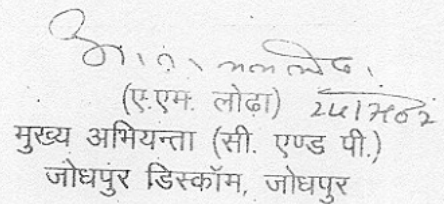 (ए.एम. लोढ़ा)
मुख्य अभियन्ता (सी. एण्ड पी.)
जोधपुर डिस्कॉम, जोधपुर